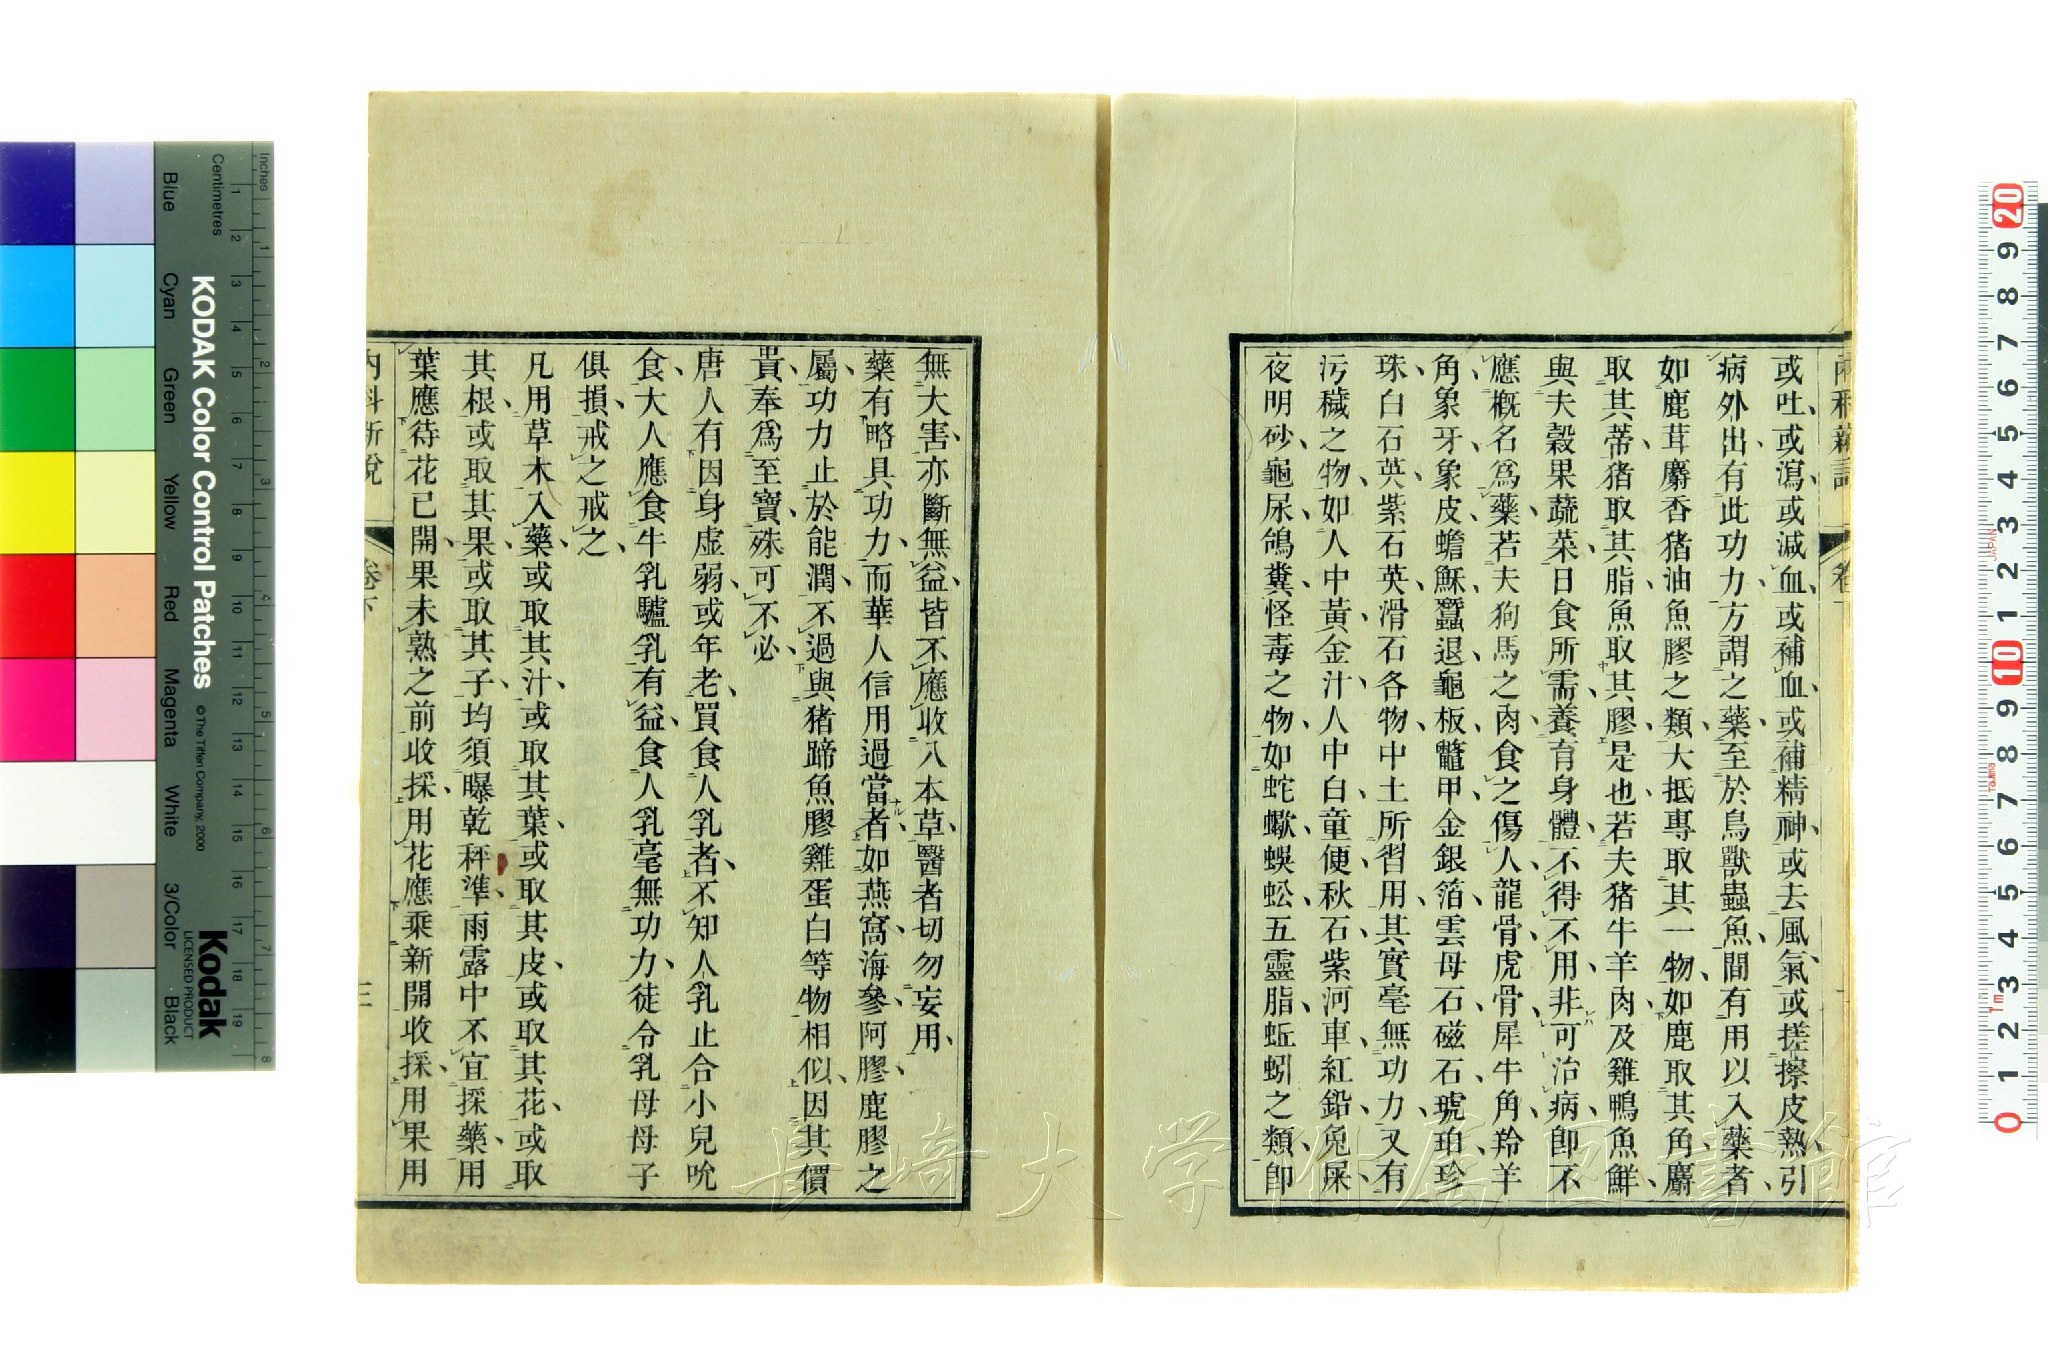 或吐或瀉或減血或補血或補精神或去風氣或搓擦皮熱引
病外出有此功力方謂之藥至於鳥獸蟲魚間有用以入藥者
如鹿茸麝香猪油魚膠之類大抵專取其一物如鹿取其角麝
取其蒂猪取其脂魚取其膠是也若夫猪牛羊肉及雞鴨魚鮮
與夫穀果蔬菜日食所需養育身體不得不用非可治病卽不
應概名爲藥若夫狗馬之肉食之傷人龍骨虎骨犀牛角羚羊
角象牙象皮蟾穌蠶退龜板鼈甲金銀箔雲母石磁石琥珀珍
珠白石英紫石英滑石各物中土所習用其實毫無功力又有
污穢之物如人中黃金汁人中白童便秋石紫河車紅鉛兔屎
夜明砂龜尿鴿糞怪毒之物如蛇蠍蜈蚣五靈脂蚯蚓之類卽
無大害亦斷無益皆不應收入本草醫者切勿妄用
藥有略具功力而華人信用過當者如燕窩海參阿膠鹿膠之
屬功力止於能潤不過與猪蹄魚膠雞蛋白等物相似因其價
貴奉爲至寶殊可不必
唐人有因身虛弱或年老買食人乳者不知人乳止合小兒吮
食大人應食牛乳驢乳有益食人乳毫無功力徒令乳母母子
俱損戒之戒之
凡用草木入藥或取其汁或取其葉或取其皮或取其花或取
其根或取其果或取其子均須曝乾秤準雨露中不宜採藥用
葉應待花已開果未熟之前收採用花應乘新開收採用果用
內科新說
卷下
三
長崎大学附属図書館
KODAK Color Control Patches
© The Tiffen Company, 2000
Kodak
LICENSED PRODUCT
Inches
Centimetres
Blue
Cyan
Green
Yellow
Red
Magenta
White
3/Color
Black